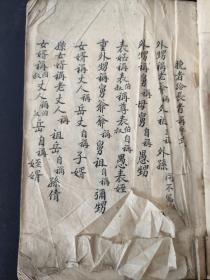 晚者給長者稱
外甥稱老爺 自稱外孫 何不寫
外甥稱舅稱母舅自稱愚甥
表姪稱表伯叔稱尊表伯叔自稱愚表姪
重外甥稱舅爺爺稱舅祖自稱彌甥
女婿稱丈人稱岳丈自稱子婿
孫女婿稱老丈人稱祖岳自稱孫倩
女婿稱伯叔丈人稱伯叔岳丈自稱姪婿